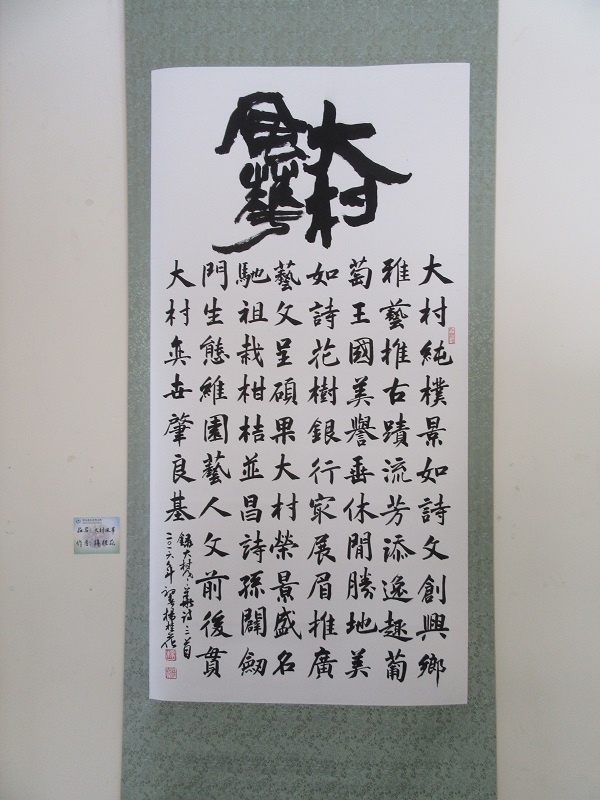 大村
風華
大村純樸景如詩文創興鄉
雅藝推古蹟流芳添逸趣葡
萄王國美譽垂休閒勝地美
如詩花樹銀行家展眉推廣
藝文呈碩果大村榮景盛名
馳祖栽柑桔並昌詩孫闢劒
門生態維園藝人文前後貫
大村奕世肇良基
錄大村風華詩三首
楊桂花
品名：大村風華
作者：楊桂花